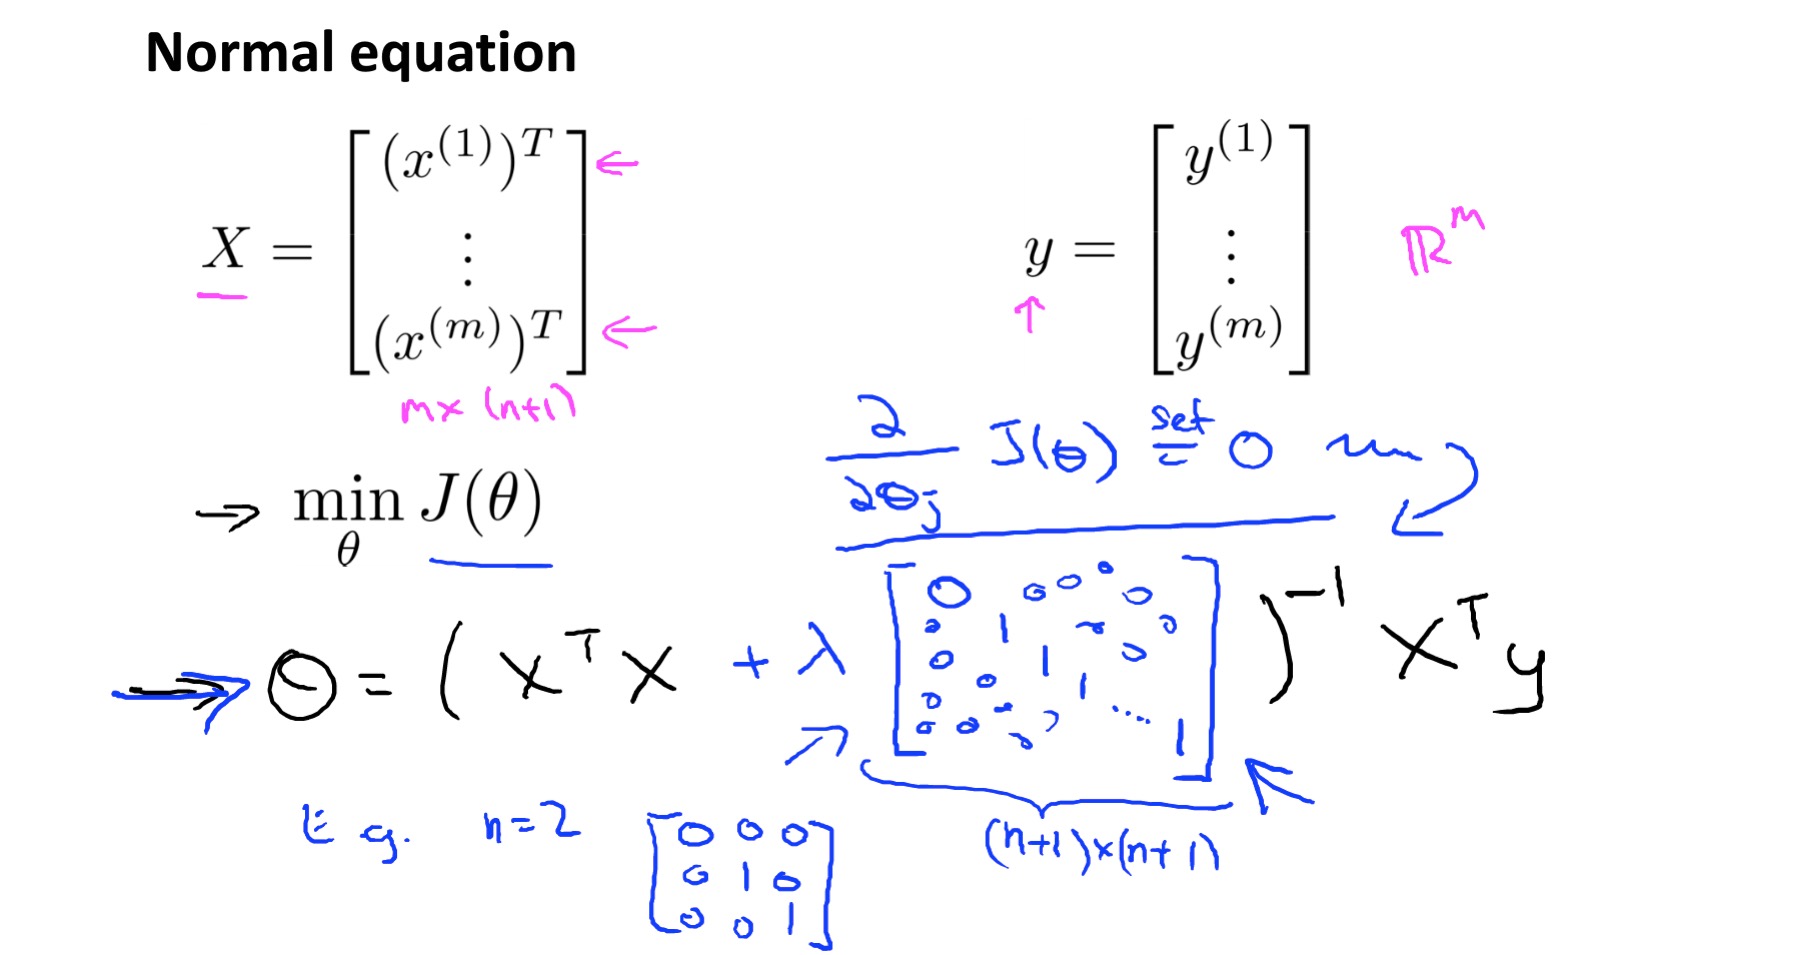 Normal equation
X = [ (x^(1))^T ⋮ (x^(m))^T ] ←
←
m × (n+1)
y = [ y^(1) ⋮ y^(m) ] ℝ^m
↑
→ min_θ J(θ)
∂/∂θ_j J(θ) set= 0
→ θ = ( X^T X + λ [
0 0 0 0 0
0 1 0 0
0 1 0
0 0 1
0 0 0 0 ⋱ 1
] )^-1 X^T y
(n+1)×(n+1)
E.g. n=2
[ 0 0 0
0 1 0
0 0 1 ]